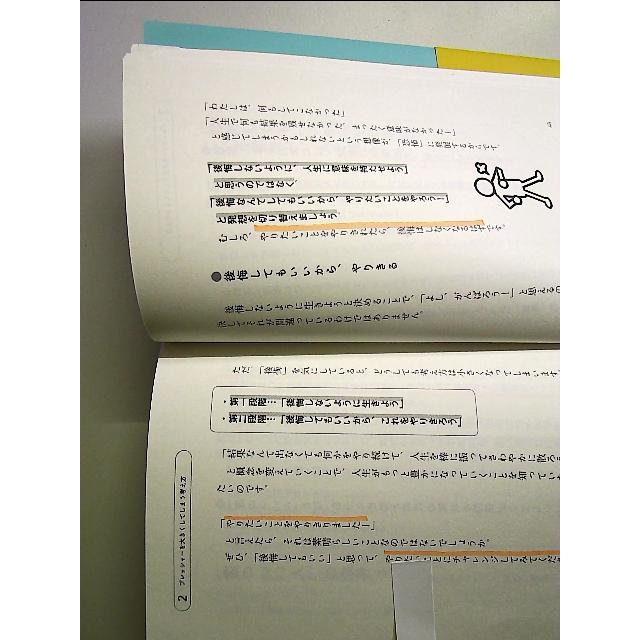 「わたしは、何もしてこなかった」
「人生で何も結果を残せなかった、まったく意味がなかった！」
と感じてしまうかもしれないという想像が、「恐怖」に発展するからです。
「後悔しないように、人生に意味を持たせよう」
と思うのではなく、
「後悔なんてしてもいいから、やりたいことをやろう！」
と発想を切り替えましょう。
むしろ、やりたいことをやりきれたら、後悔はしなくなるはずです。
●後悔してもいいから、やりきる
後悔しないように生きようと決めることで、「よし、がんばろう！」と思えるの
決してそれが間違っているわけではありません。
ただ、「後悔」を気にしていると、どうしても考え方は小さくなってしまいます。
・第一段階…「後悔しないように生きよう」
・第二段階…「後悔してもいいから、これをやりきろう」
「結果なんて出なくても何かをやり続けて、人生を棒に振ってさわやかに散ろ
と概念を変えていくことで、人生がもっと豊かになっていくことを知ってい
たいのです。
「やりたいことをやりきりました！」
と言えたら、それは素晴らしいことなのではないでしょうか。
ぜひ、「後悔してもいい」と思って、やりたいことにチャレンジしてみてくだ
2 プレッシャーを大きくしてしまう考え方